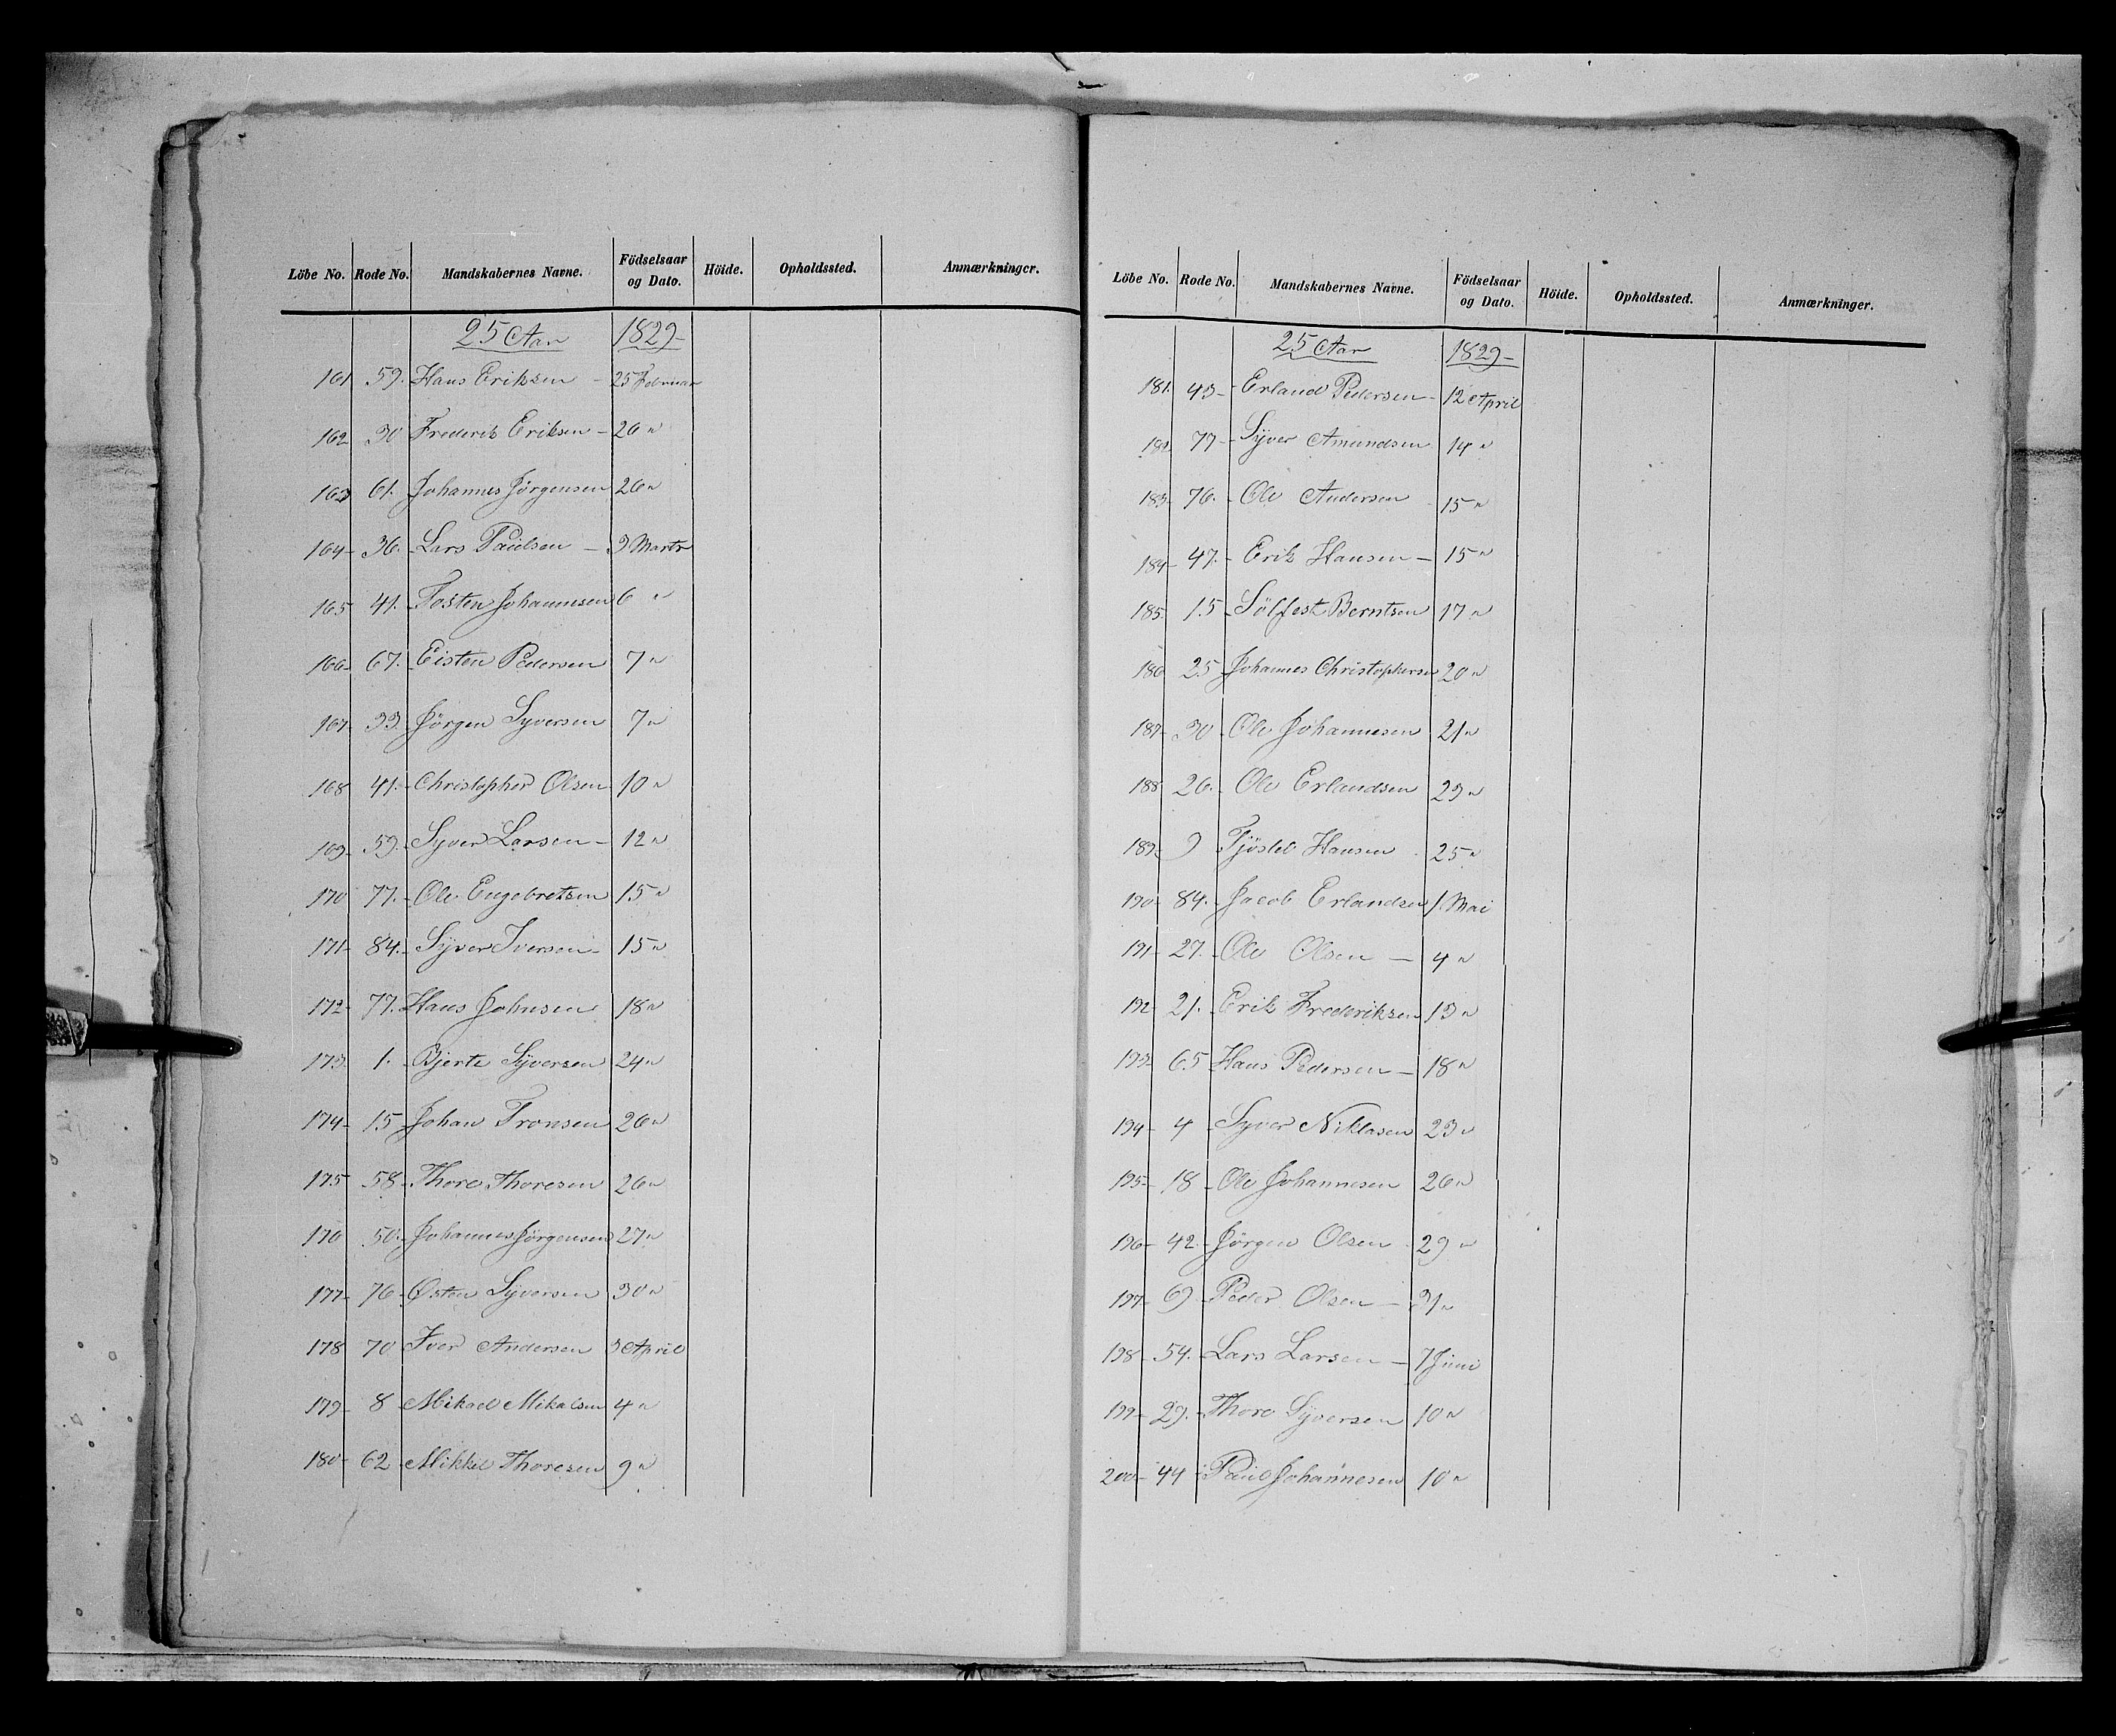 Löbe No. Rode No. Mandskabernes Navne. Födselsaar og Dato. Höide. Opholdssted. Anmærkninger.
25 Aar 1829
161 59. Hans Eriksen - 25 Februar
162 30 Frederik Eriksen - 26 "
163 61. Johannes Jörgensen 26 "
164 - 36. Lars Paulsen - 3 Marts
165 41. Tosten Johannesen 6 "
166 - 67. Eisten Pedersen 7 "
167 - 33. Jörgen Syversen 7 "
168 41. Christopher Olsen 10 "
169 - 59. Syver Larsen - 12 "
170 77. Ole Engebretsen 15 "
171 - 84. Syver Iversen - 15 "
172 - 77. Hans Johnsen 18 "
173 1. Bjerte Syversen 24 "
174 - 15 Johan Tronsen 26 "
175 58 Thore Thoresen 26 "
176 50. Johannes Jörgensen 27 "
177 - 76 Østen Syversen 30 "
178 70 Iver Andersen 3 April
179 - 8 Mikael Mikalsen 4 "
180 - 62 Mikkel Thoresen 9 "
Löbe No. Rode No. Mandskabernes Navne. Födselsaar og Dato. Höide. Opholdssted. Anmærkninger.
25 Aar 1829
181. 43 - Erland Pedersen - 12 April
182 77 - Syver Amundsen 14 "
183 - 76. Ole Andersen 15 "
184 - 47. Erik Hansen - 15 "
185. 15 Sölfest Berntsen 17 "
186 25 Johannes Christophersen 20 "
187 - 30 Ole Johannesen 21 "
188 26. Ole Erlandsen 23 "
189 - 9 Tjöslel Hansen 25 "
190 - 84. Jacob Erlandsen 1. Mai
191 - 27. Ole Olsen - 4 "
192 - 21. Erik Frederiksen 13 "
193 - 65 Hans Pedersen - 18 "
194 - 4 Syver Niklasen 23 "
195 - 18 Ole Johannesen 26 "
196 - 42. Jörgen Olsen 29 "
197 - 69 Peder Olsen - 31 "
198 - 54. Lars Larsen - 7 Juni
199 - 29. Thore Syversen 10 "
200 - 44 Paul Johannesen 10 "